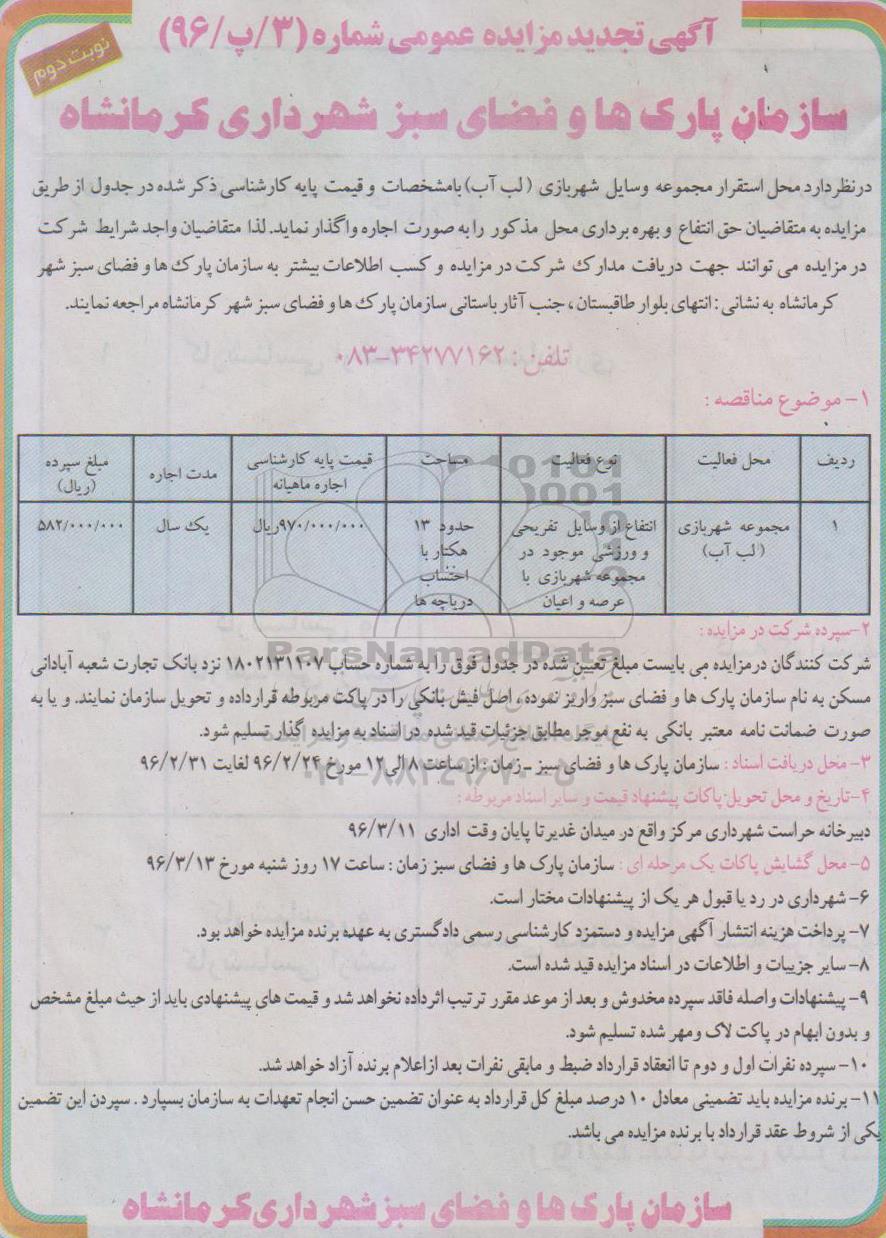 آگهی تجدید مزایده عمومی شماره (۳/پ/۹۶)
نوبت دوم
سازمان پارک ها و فضای سبز شهرداری کرمانشاه
درنظردارد محل استقرار مجموعه وسایل شهربازی (لب آب) بامشخصات و قیمت پایه کارشناسی ذکر شده در جدول از طریق
مزایده به متقاضیان حق انتفاع و بهره برداری محل مذکور را به صورت اجاره واگذار نماید. لذا متقاضیان واجد شرایط شرکت
در مزایده می توانند جهت دریافت مدارک شرکت در مزایده و کسب اطلاعات بیشتر به سازمان پارک ها و فضای سبز شهر
کرمانشاه به نشانی : انتهای بلوار طاقبستان ، جنب آثار باستانی سازمان پارک ها و فضای سبز شهر کرمانشاه مراجعه نمایند.
تلفن : ۳۴۲۷۷۱۶۲-۰۸۳
۱- موضوع مناقصه :
ردیف محل فعالیت نوع فعالیت مساحت قیمت پایه کارشناسی اجاره ماهیانه مدت اجاره مبلغ سپرده (ریال)
۱ مجموعه شهربازی (لب آب) انتفاع از وسایل تفریحی و ورزشی موجود در مجموعه شهربازی با عرصه و اعیان حدود ۱۳ هکتار با احتساب دریاچه ها ۹۷۰/۰۰۰/۰۰۰ریال یک سال ۵۸۲/۰۰۰/۰۰۰
۲-سپرده شرکت در مزایده :
ParsNamadData
شرکت کنندگان درمزایده می بایست مبلغ تعیین شده در جدول فوق را به شماره حساب ۱۸۰۲۱۳۱۱۰۷ نزد بانک تجارت شعبه آبادانی
مسکن به نام سازمان پارک ها و فضای سبز واریز نموده ، اصل فیش بانکی را در پاکت مربوطه قرارداده و تحویل سازمان نمایند. و یا به
صورت ضمانت نامه معتبر بانکی به نفع موجر مطابق جزئیات قید شده در اسناد به مزایده گذار تسلیم شود.
۳- محل دریافت اسناد : سازمان پارک ها و فضای سبز - زمان : از ساعت ۸ الی ۱۲ مورخ ۹۶/۲/۲۴ لغایت ۹۶/۲/۳۱
۴-تاریخ و محل تحویل پاکات پیشنهاد قیمت و سایر اسناد مربوطه :
دبیرخانه حراست شهرداری مرکز واقع در میدان غدیر تا پایان وقت اداری ۹۶/۳/۱۱
۵- محل گشایش پاکات یک مرحله ای : سازمان پارک ها و فضای سبز زمان : ساعت ۱۷ روز شنبه مورخ ۹۶/۳/۱۳
۶- شهرداری در رد یا قبول هر یک از پیشنهادات مختار است.
۷- پرداخت هزینه انتشار آگهی مزایده و دستمزد کارشناسی رسمی دادگستری به عهده برنده مزایده خواهد بود.
۸- سایر جزییات و اطلاعات در اسناد مزایده قید شده است.
۹- پیشنهادات واصله فاقد سپرده مخدوش و بعد از موعد مقرر ترتیب اثرداده نخواهد شد و قیمت های پیشنهادی باید از حیث مبلغ مشخص
و بدون ابهام در پاکت لاک ومهر شده تسلیم شود.
۱۰- سپرده نفرات اول و دوم تا انعقاد قرارداد ضبط و مابقی نفرات بعد ازاعلام برنده آزاد خواهد شد.
۱۱- برنده مزایده باید تضمینی معادل ۱۰ درصد مبلغ کل قرارداد به عنوان تضمین حسن انجام تعهدات به سازمان بسپارد . سپردن این تضمین
یکی از شروط عقد قرارداد با برنده مزایده می باشد.
سازمان پارک ها و فضای سبز شهرداری کرمانشاه